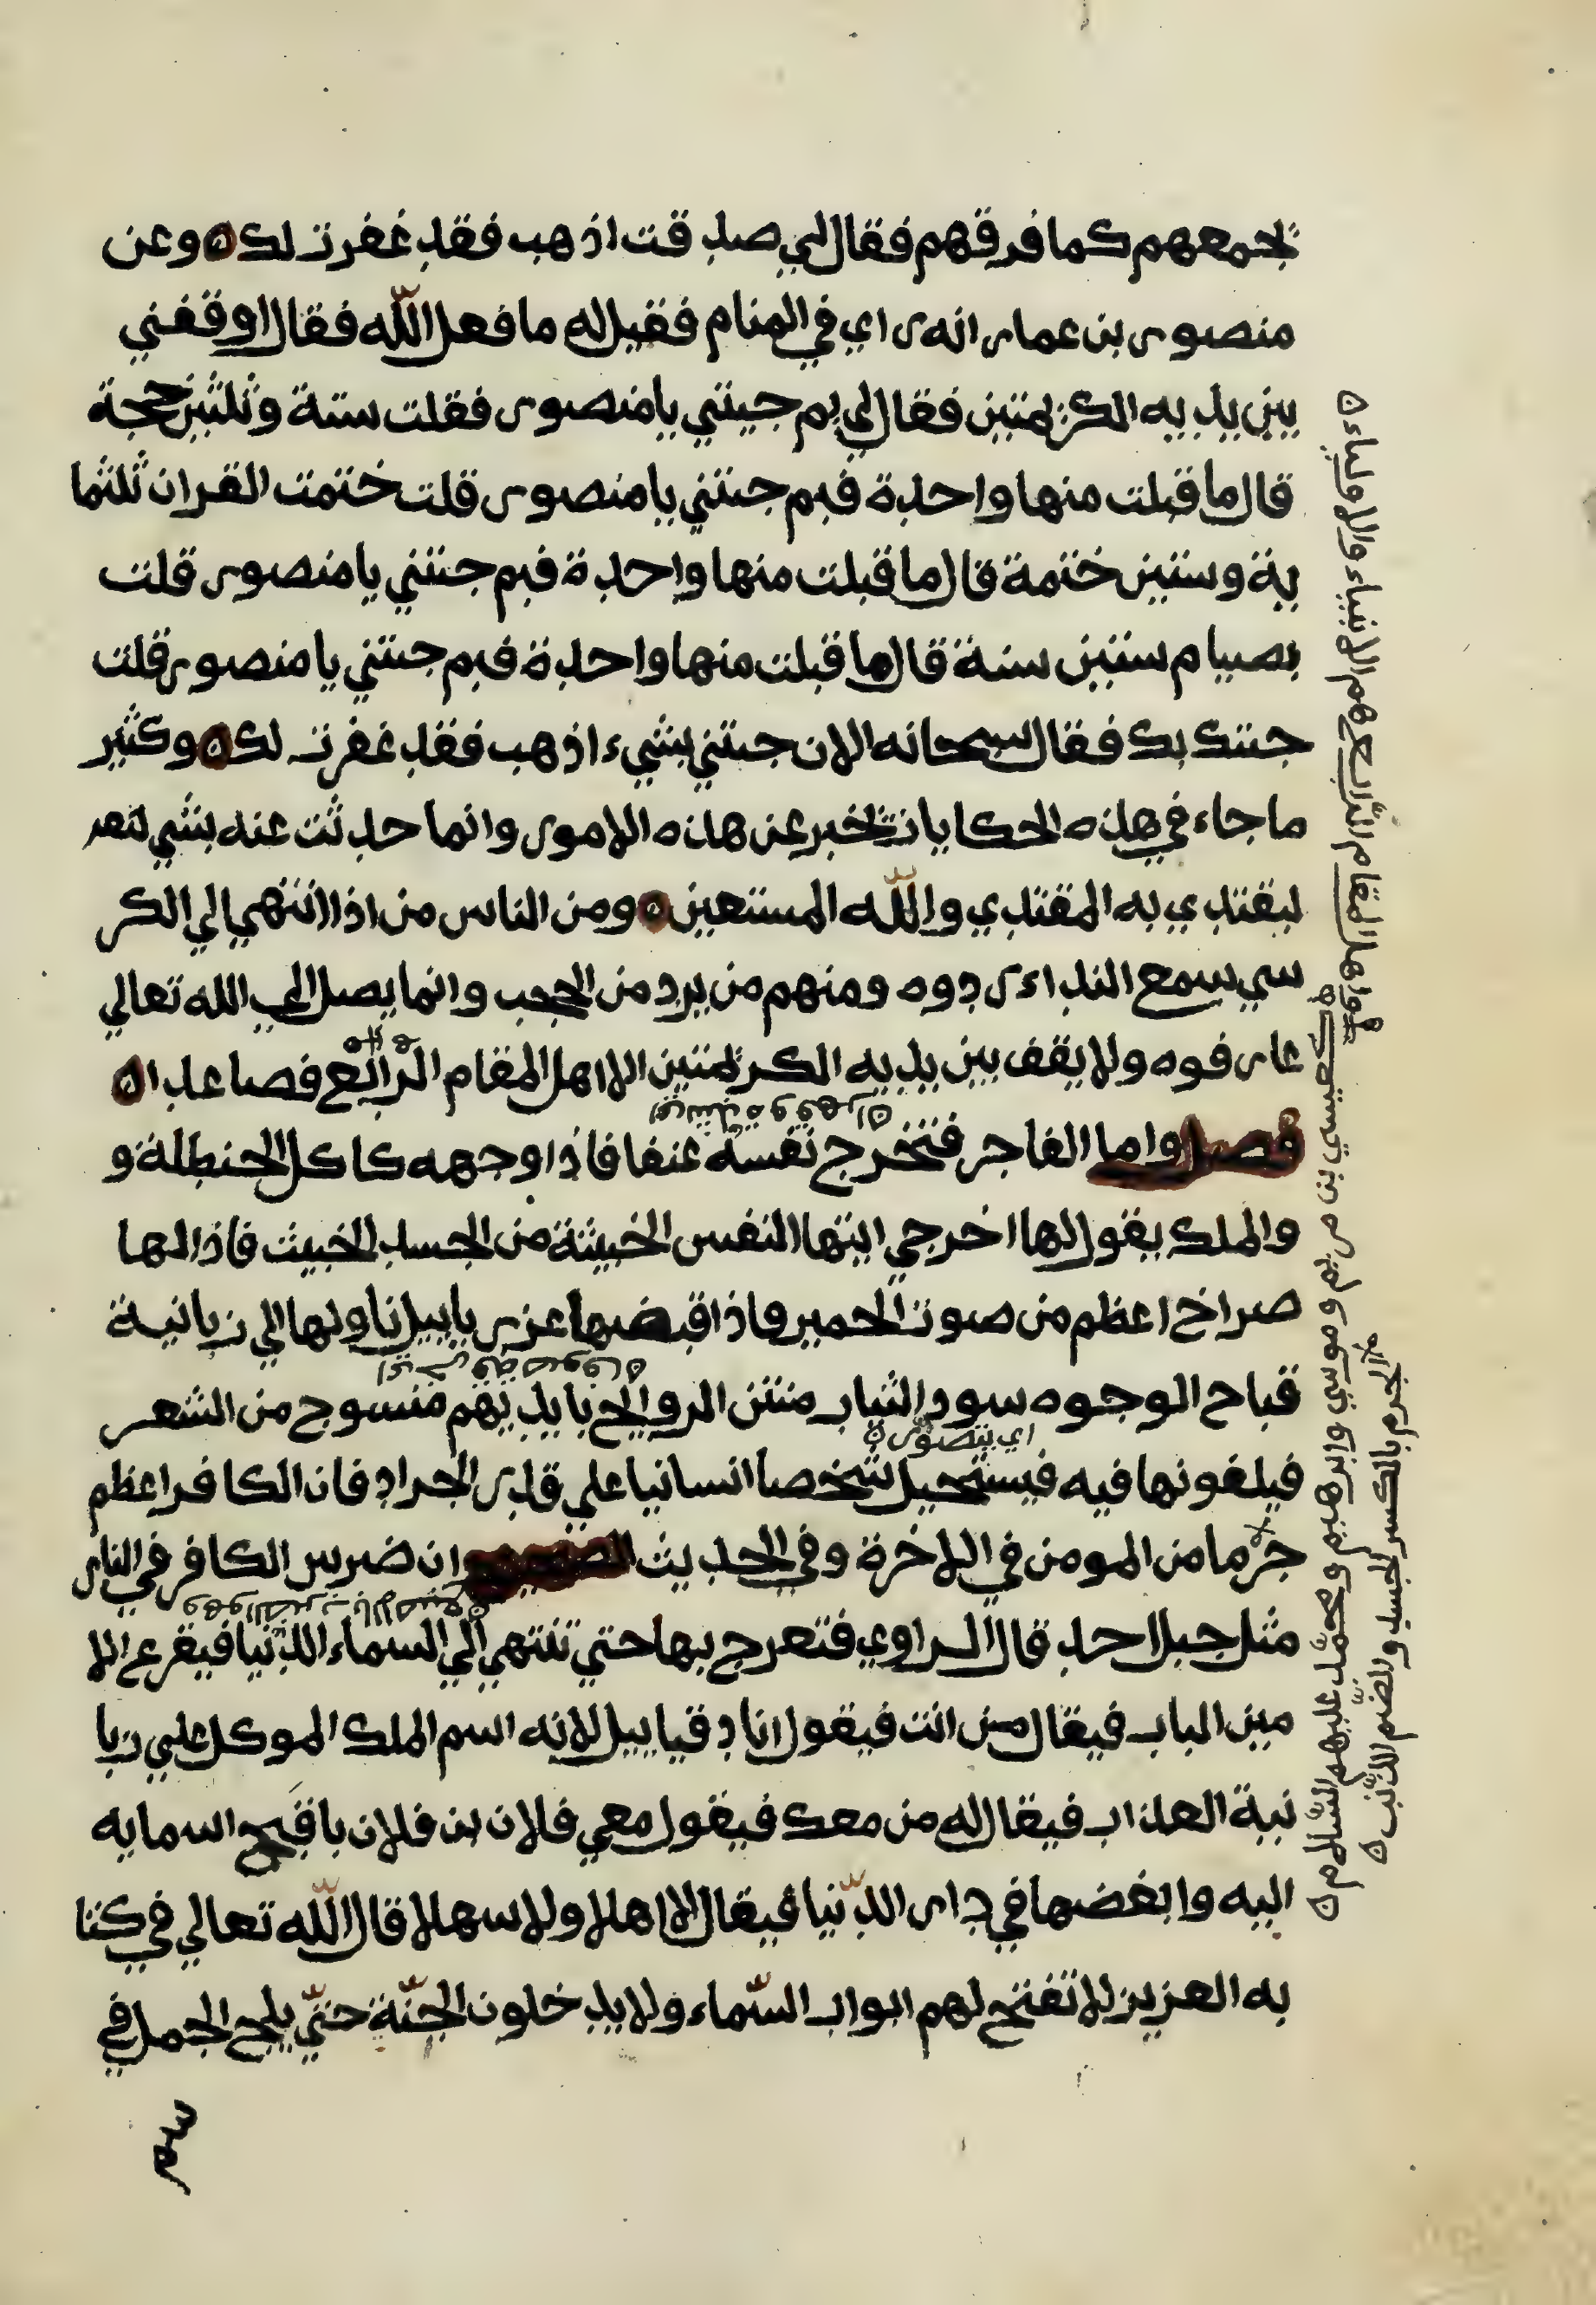 تجمعهم كما فرقهم فقال لي صدقت اذهب فقد غفرت لك ه وعن
منصور بن عمار انه راي في المنام فقيل له ما فعل اللّه فقال اوقفني
بين يديه الكريمتين فقال لي بم جيتني يا منصور فقلت ستة وثلثين حجة
قال ما قبلت منها واحدة فبم جئتني يا منصور قلت ختمت القران ثلثما
ية وستين ختمة قال ما قبلت منها واحدة فبم جئتني يا منصور قلت
بصيام ستين سنة قال ما قبلت منها واحدة فبم جئتني يا منصور قلت
جئتك بك فقال سبحانه الان جئتني بشيء اذهب فقد غفرت لك ه وكثير
ما جاء في هذه الحكايات تخبر عن هذه الامور وانما حدثت عنه بشي
ليقتدي به المقتدي واللّه المستعين ه ومن الناس من اذا انتهي الي الكر
سي سمع النداء ردوه ومنهم من يرد من الحجب وانما يصل الي الله تعالي
عارفوه ولا يقف بين يديه الكريمتين الا اهل المقام الرّابع فصاعدا ه
اي بشدة وقهر ه
فصل واما الفاجر فتخرج نفسه عنفا فاذا وجهه كاكل الحنظلة و
والملك يقول لها اخرجي ايتها النفس الخبيثة من الجسد الخبيث فاذا لها
صراخ اعظم من صوت الحمير فاذا قبضها عزرياييل ناولها الي زبانية
قباح الوجوه سود الثياب منتن الروايح بايديهم منسوج من الشعر
اي يتصوّر ه
فيلفونها فيه فيستحيل شخصا انسانيا علي قدر الجراد فان الكافر اعظم
جرما من المومن في الاخرة وفي الحديث الصحيح ان ضرس الكافر في النار
مثل جبل احد قال الراوي فتعرج بها حتي تنتهي الي السماء الدّنيا فيقرع الا
مين الباب فيقال من انت فيقول انا دقياييل لانه اسم الملك الموكل علي زبا
نية العذاب فيقال له من معك فيقول معي فلان بن فلان باقبح اسمايه
اليه وابغضها في دار الدّنيا فيقال لا اهلا ولا سهلا قال اللّه تعالي في كتا
به العزيز لا تفتح لهم ابواب السّماء ولا يدخلون الجنّة حتّي يلج الجمل في
واهل المقام الرّابع هم الانبياء والاولياء ه
وموسي وابرهيم ومحمّد عليهم السّلام ه
الجرم بالكسر الجسد والضّم الذّنب ه